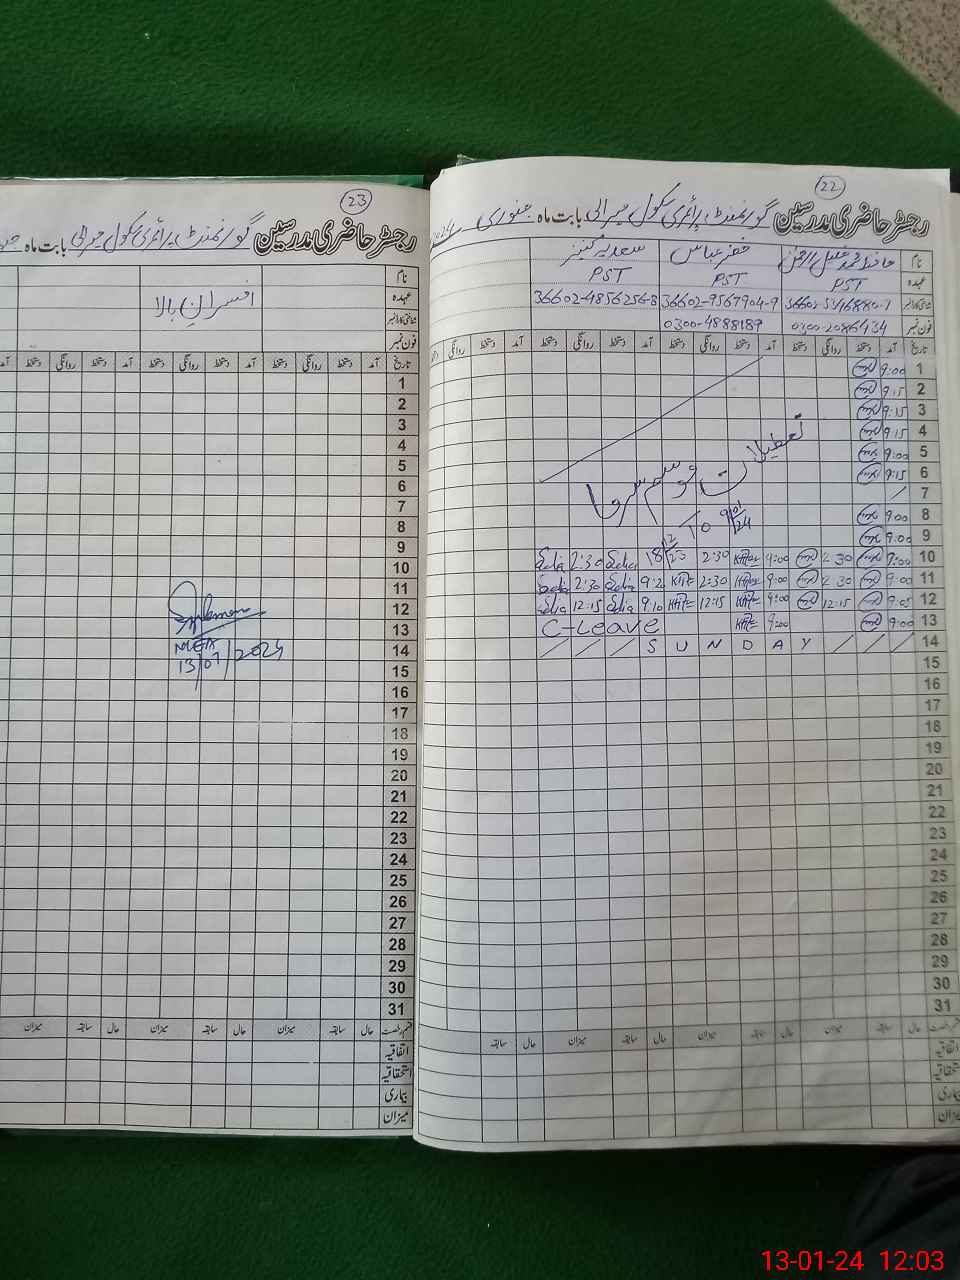 22
رجسٹر حاضری مدرسین گورنمنٹ پرائمری سکول میرالی بابت ماہ جنوری
نام
خضر عباس
سعدیہ کنیز
عہدہ PST PST PST
36602-9567904-9 36602-4856256-8
فون نمبر 0300-2086434 0300-4888189
تاریخ آمد دستخط روانگی دستخط آمد دستخط روانگی دستخط آمد دستخط روانگی دستخط
1 9:00
2 9:15
3 9:15
4 9:15
5 9:00
6 9:15
7 /
8 9:00
9 9:00
تعطیلات موسم سرما
18/12/23 To 9/01/24
10 9:00 2:30 9:00 2:30 Sadia 2:30 Sadia
11 9:00 2:30 9:00 2:30 9:2 Sadia 2:30 Sadia
12 9:05 12:15 9:00 12:15 9:10 Sadia 12:15 Sadia
13 9:00 9:00 C-Leave
14 / / / S U N D A Y / / /
15
16
17
18
19
20
21
22
23
24
25
26
27
28
29
30
31
قسم رخصت حال سابقہ میزان حال سابقہ میزان حال سابقہ
اتفاقیہ
استحقاقیہ
بیماری
میزان
23
رجسٹر حاضری مدرسین گورنمنٹ پرائمری سکول میرالی بابت ماہ
نام
عہدہ
افسران بالا
شناختی کارڈ نمبر
فون نمبر
تاریخ آمد دستخط روانگی دستخط آمد دستخط روانگی دستخط آمد دستخط روانگی
1
2
3
4
5
6
7
8
9
10
11
12
13
14
15
16
17
18
19
20
21
22
23
24
25
26
27
28
29
30
31
13/01/2024
قسم رخصت حال سابقہ میزان حال سابقہ میزان حال سابقہ میزان
اتفاقیہ
استحقاقیہ
بیماری
میزان
13-01-24 12:03